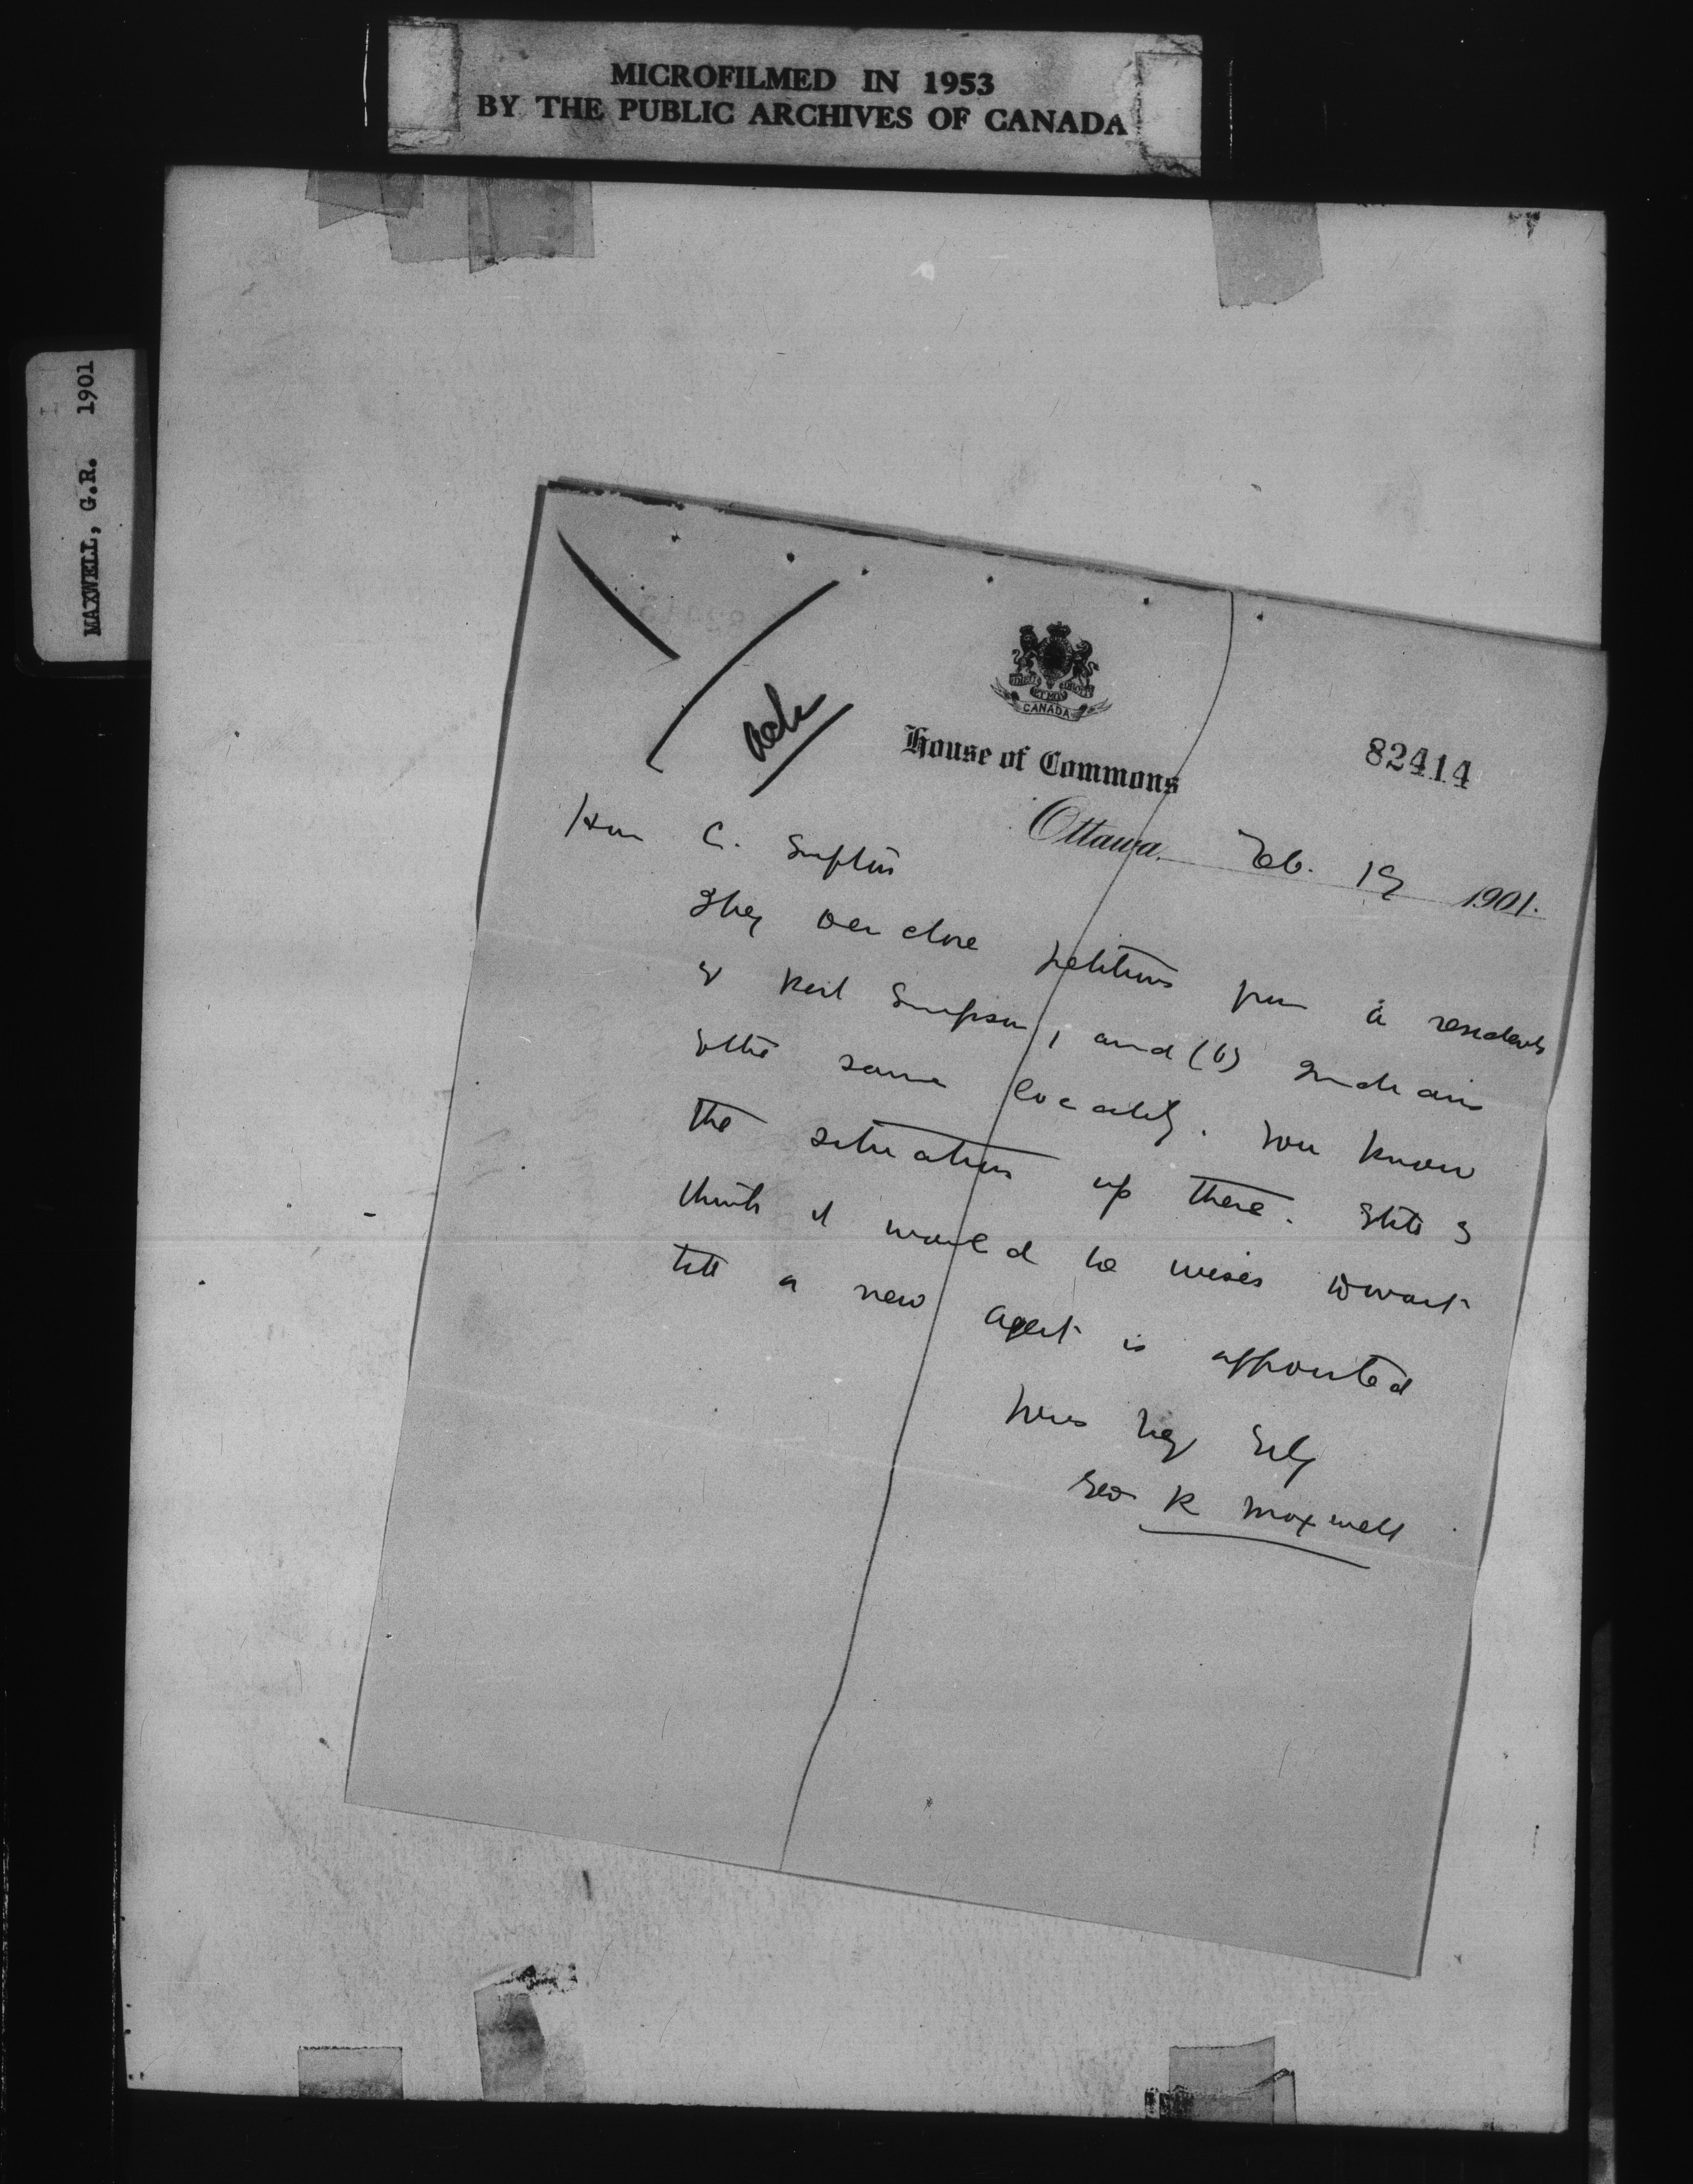 MICROFILMED IN 1953
BY THE PUBLIC ARCHIVES OF CANADA
MAXWELL, G.R. 1901
ack
CANADA
House of Commons
82414
Ottawa, Feb. 19 1901.
Hon C. Sifton
I beg to enclose petitions from a residents
of Port Simpson, and (b) Indians
of the same locality. You know
the situation up there. I
think it would be wiser to wait
till a new agent is appointed
Yours Sily
Geo R Maxwell